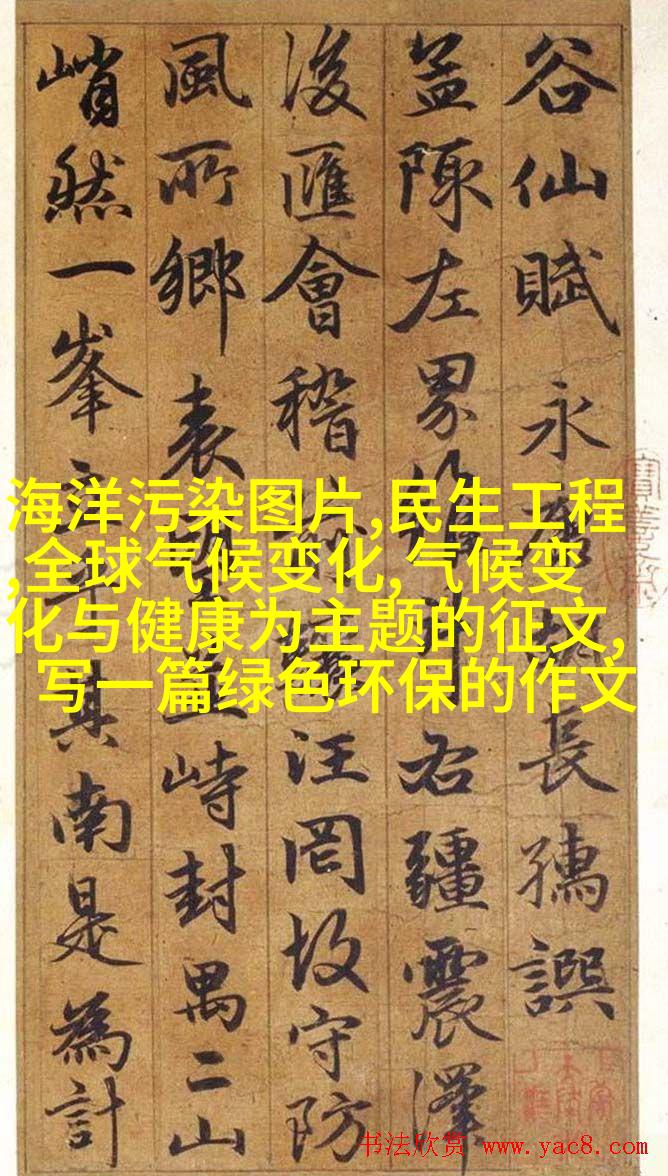 谷仙賦 永康 長孺譔
盖陳左界 右疆震澤
浚匯會稽 汪罔故守防
風所鄉表望並峙封禺二山
峭然一峯 其南是為計
海洋污染图片,民生工程
,全球气候变化,气候变
化与健康为主题的征文,
写一篇绿色环保的作文
书法欣赏 www.yac8.com